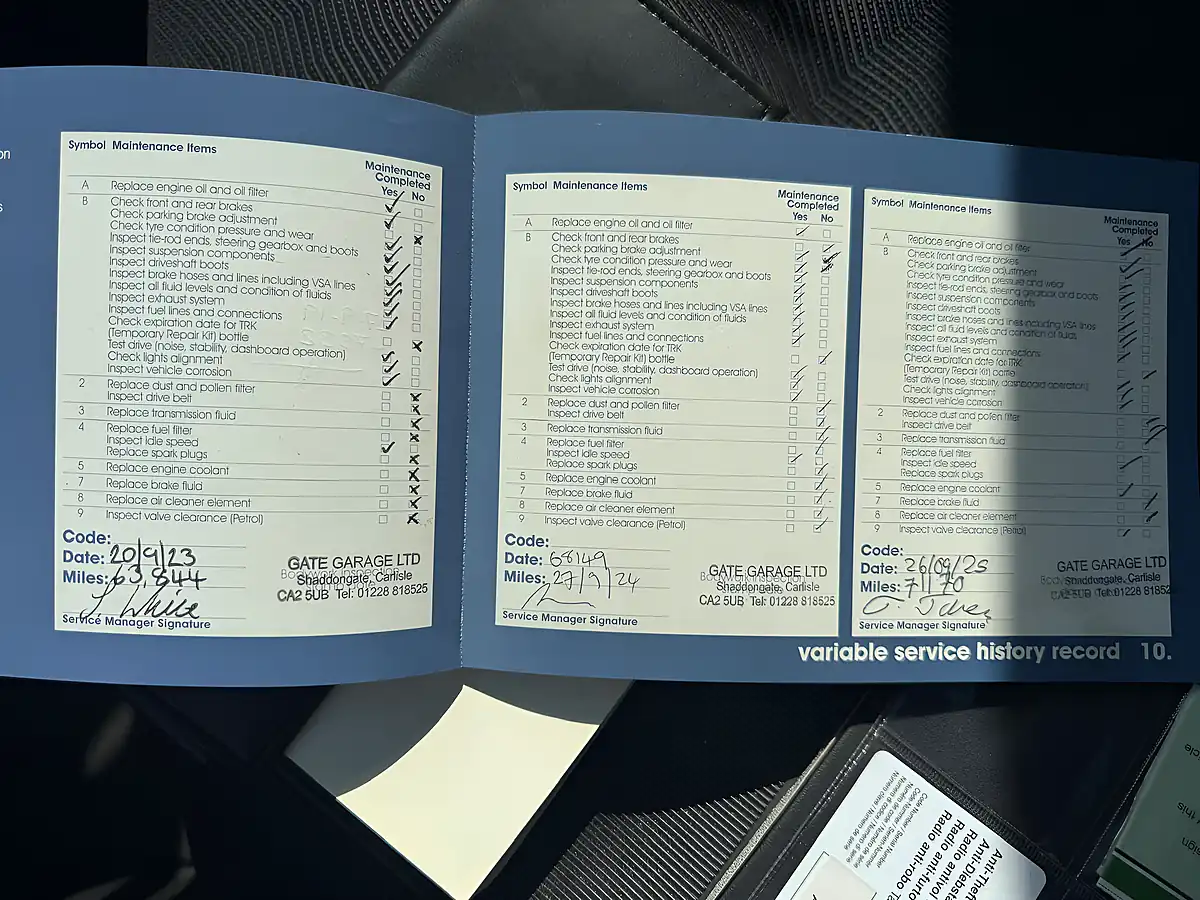 on
s
Symbol Maintenance Items
Maintenance
Completed
Yes No
A Replace engine oil and oil filter
B Check front and rear brakes
Check parking brake adjustment
Check tyre condition pressure and wear
Inspect tie-rod ends, steering gearbox and boots
Inspect suspension components
Inspect driveshaft boots
Inspect brake hoses and lines including VSA lines
Inspect all fluid levels and condition of fluids
Inspect exhaust system
Inspect fuel lines and connections
Check expiration date for TRK
(Temporary Repair Kit) bottle
Test drive (noise, stability, dashboard operation)
Check lights alignment
Inspect vehicle corrosion
2 Replace dust and pollen filter
Inspect drive belt
3 Replace transmission fluid
4 Replace fuel filter
Inspect idle speed
Replace spark plugs
5 Replace engine coolant
7 Replace brake fluid
8 Replace air cleaner element
9 Inspect valve clearance (Petrol)
Code:
Date: 20/9/23
Miles: 63,844
J. White
Service Manager Signature
GATE GARAGE LTD
Bodywork Inspection
Shaddongate, Carlisle
CA2 5UB Tel: 01228 818525
Symbol Maintenance Items
Maintenance
Completed
Yes No
A Replace engine oil and oil filter
B Check front and rear brakes
Check parking brake adjustment
Check tyre condition pressure and wear
Inspect tie-rod ends, steering gearbox and boots
Inspect suspension components
Inspect driveshaft boots
Inspect brake hoses and lines including VSA lines
Inspect all fluid levels and condition of fluids
Inspect exhaust system
Inspect fuel lines and connections
Check expiration date for TRK
(Temporary Repair Kit) bottle
Test drive (noise, stability, dashboard operation)
Check lights alignment
Inspect vehicle corrosion
2 Replace dust and pollen filter
Inspect drive belt
3 Replace transmission fluid
4 Replace fuel filter
Inspect idle speed
Replace spark plugs
5 Replace engine coolant
7 Replace brake fluid
8 Replace air cleaner element
9 Inspect valve clearance (Petrol)
Code:
Date: 68149
Miles: 27/9/24
Service Manager Signature
GATE GARAGE LTD
Bodywork Inspection
Shaddongate, Carlisle
CA2 5UB Tel: 01228 818525
Symbol Maintenance Items
Maintenance
Completed
Yes No
A Replace engine oil and oil filter
B Check front and rear brakes
Check parking brake adjustment
Check tyre condition pressure and wear
Inspect tie-rod ends, steering gearbox and boots
Inspect suspension components
Inspect driveshaft boots
Inspect brake hoses and lines including VSA lines
Inspect all fluid levels and condition of fluids
Inspect exhaust system
Inspect fuel lines and connections
Check expiration date for TRK
(Temporary Repair Kit) bottle
Test drive (noise, stability, dashboard operation)
Check lights alignment
Inspect vehicle corrosion
2 Replace dust and pollen filter
Inspect drive belt
3 Replace transmission fluid
4 Replace fuel filter
Inspect idle speed
Replace spark plugs
5 Replace engine coolant
7 Replace brake fluid
8 Replace air cleaner element
9 Inspect valve clearance (Petrol)
Code:
Date: 26/09/25
Miles: 71170
Service Manager Signature
GATE GARAGE LTD
Shaddongate, Carlisle
CA2 5UB Tel: 01228 818525
variable service history record 10.
Anti-Thef
Anti-Diebsta
Radio antivol
Radio anti-furto
Radio anti-robo
Code Number / Serial Number